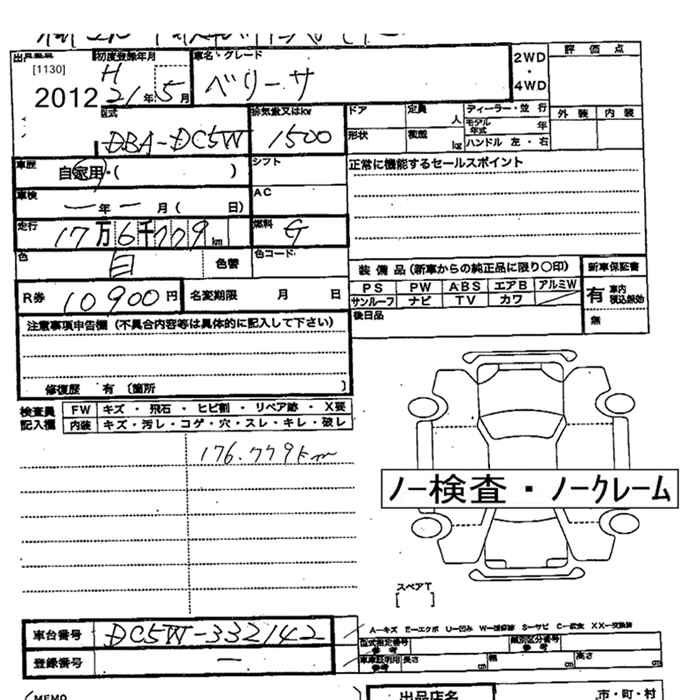 出品番号 初度登録年月 車名・グレード 2WD・4WD 評価点
[1130] H ベリーサ
2012 21年5月 外装 内装
型式 DBA-DC5W 排気量又はkw 1500 ドア 定員 人 ディーラー・並行
形状 積載 kg モデル年式 年
ハンドル 左・右
車歴 自家用・( ) シフト 正常に機能するセールスポイント
車検 ー年ー月( 日) AC
走行 17万6千779km 燃料 G
色 白 色替 色コード
装備品(新車からの純正品に限り○印) 新車保証書
R券 10900円 名変期限 月 日 PS PW ABS エアB アルミW 有 車内積込厳効
サンルーフ ナビ TV カワ
後日品 無
注意事項申告欄(不具合内容等は具体的に記入して下さい)
修復歴 有 〔箇所 〕
検査員記入欄 FW キズ・飛石・ヒビ割・リペア跡・X要
内装 キズ・汚レ・コゲ・穴・スレ・キレ・破レ
176.779km
ノー検査・ノークレーム
スペアT
[ ]
車台番号 DC5W-332142
A-キズ E-エクボ U-凹み W-補修跡 S-サビ C-腐食 XX-交換跡
型式指定番号 参考 類別区分番号 参考
登録番号 ー 車庫証明用 参考 長さ cm 幅 cm 高さ cm
(MEMO 出品店名 市・町・村